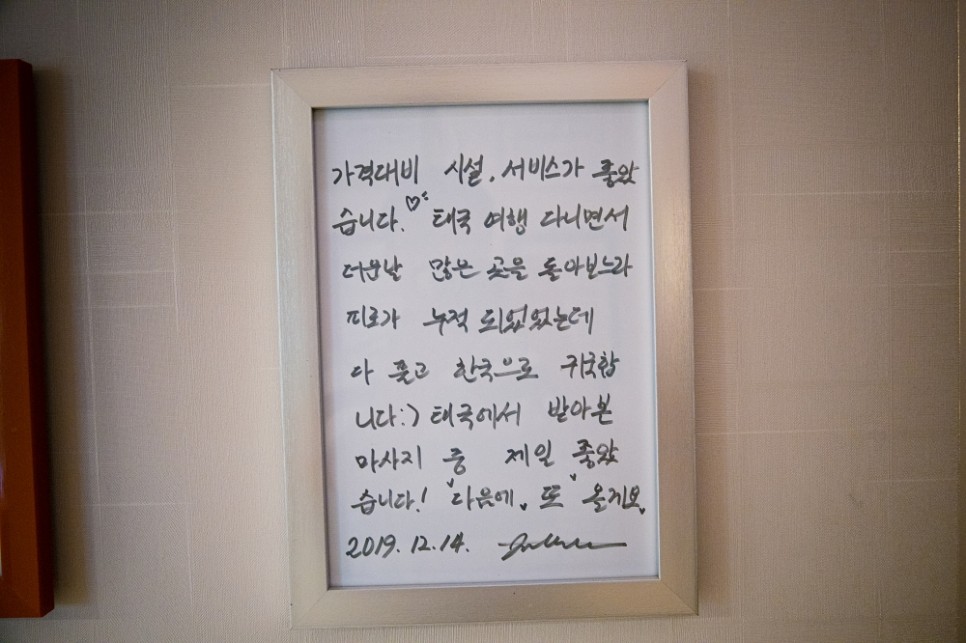 가격대비 시설, 서비스가 좋았
습니다.♡ 태국 여행 다니면서
더운날 많은 곳을 돌아보느라
피로가 누적 되었었는데
다 풀고 한국으로 귀국합
니다:) 태국에서 받아본
마사지 중 제일 좋았
습니다! "다음에, 또" 올게요
2019. 12. 14.